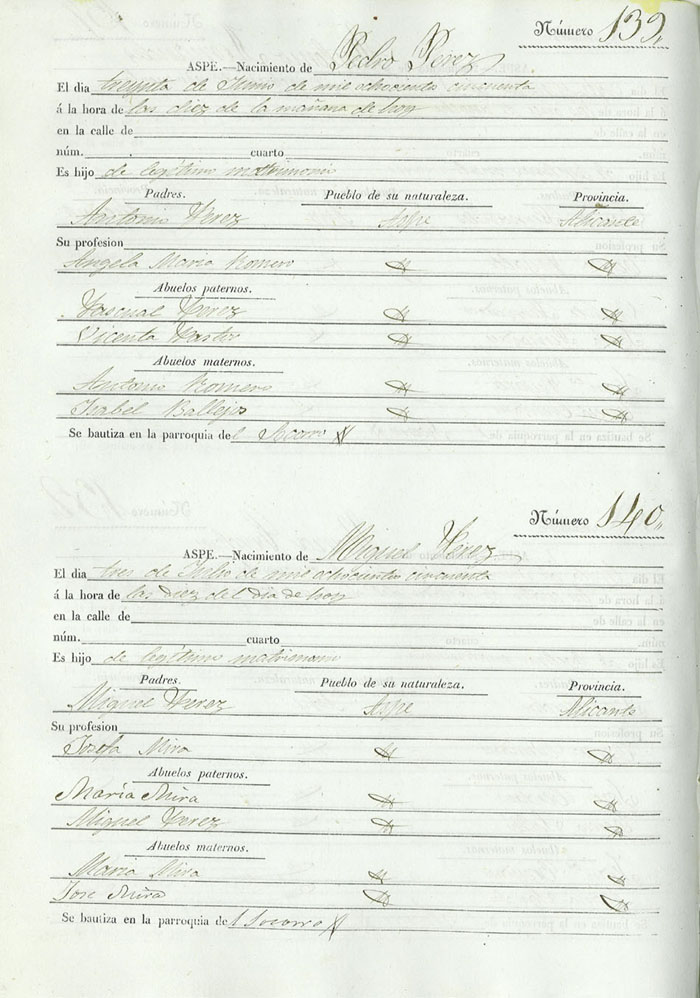 Número 139
ASPE.—Nacimiento de Pedro Perez
El dia treynta de Junio de mil ochociento cincuenta
á la hora de las diez de la mañana de hoy
en la calle de
núm. cuarto
Es hijo de legitimo matrimonio
Padres. Pueblo de su naturaleza. Provincia.
Antonio Perez Aspe Alicante
Su profesion
Angela Maria Romero
Abuelos paternos.
Pascual Perez
Vicenta Pastor
Abuelos maternos.
Antonio Romero
Isabel Vallejos
Se bautiza en la parroquia del Socorro
Número 140
ASPE.—Nacimiento de Miguel Perez
El dia tres de Julio de mil ochocientos cincuenta
á la hora de las diez del dia de hoy
en la calle de
núm. cuarto
Es hijo de legitimo matrimonio
Padres. Pueblo de su naturaleza. Provincia.
Miguel Perez Aspe Alicante
Su profesion
Josefa Mira
Abuelos paternos.
María Mira
Miguel Perez
Abuelos maternos.
Maria Mira
Jose Mira
Se bautiza en la parroquia del Socorro